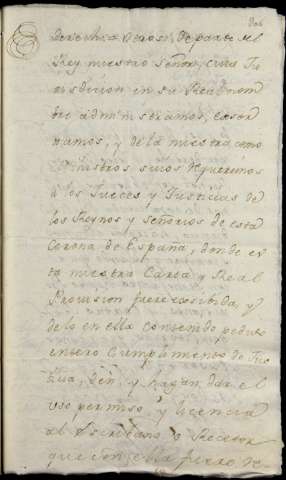 derechos de nos, de parte del
Rey nuestro Señor, cuia Ju
risdicion en su Real nom
bre administramos, exsor
tamos, y de la nuestra como
Ministros suios Requerimos
a los Jueces y Justicias de
los Reynos y Señorios de esta
Corona de España, donde es
ta nuestra Carta y Real
Provision fuere exsivida y
de lo en ella contenido pedido
entero Cumplimento de Jus
ticia, den, y hagan dar el
uso permiso, y licencia
al Escribano o Receptor
que con ella fuere re-